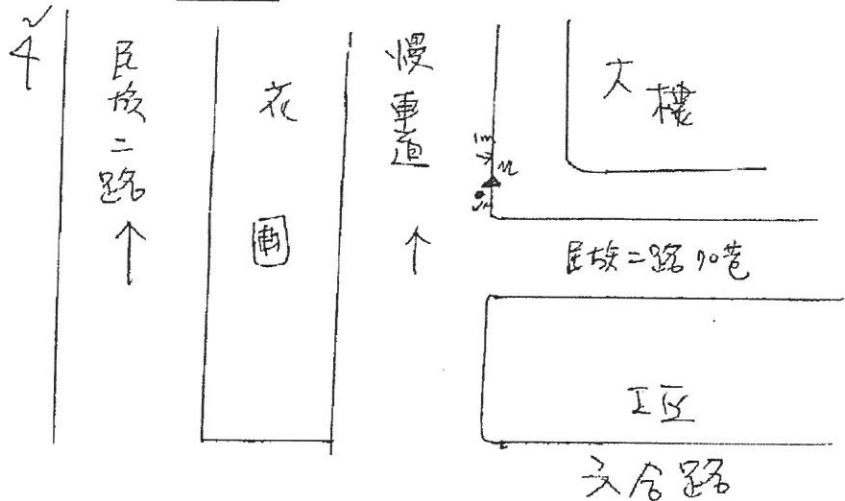 民族二路
花圃
慢車道
大樓
1m
民族二路70巷
工區
六合路